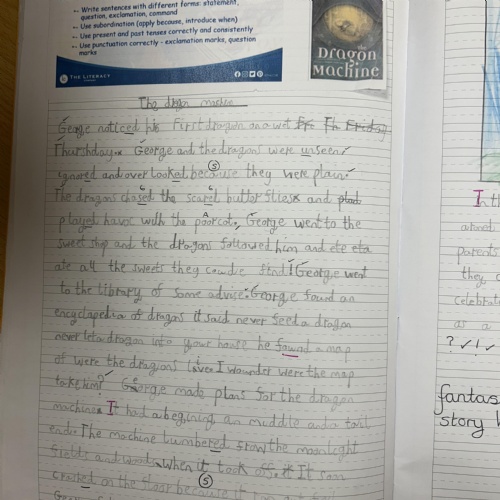 Write sentences with different forms: statement,
question, exclamation, command
Use subordination (apply because, introduce when)
Use present and past tenses correctly and consistently
Use punctuation correctly - exclamation marks, question
marks
THE LITERACY
THE
Dragon
Machine
The dragon machine
George noticed his first dragon on a wet Friday
Thurshday. George and the dragons were unseen
ignored and over looked because they were plain.
The dragons chased the scared butter flies and
played havoc with the poarcat. George went to the
sweet shop and the dragons followed him and ete eta
ate all the sweets they coudle find! George went
to the library of some advice. George found an
encyclopedia of dragons it said never feed a dragon
never let a dragon into your house he found a map
of were the dragons live. I wounder were the map
take him? George made plans for the dragon
machine. It had a begining, an muddile and a tail
end. The machine lumbered from the moonlight
fields and woods. When it took off. It
crashed on the because it
In th
around
parents
they c
celebrate
as a
fantas
story